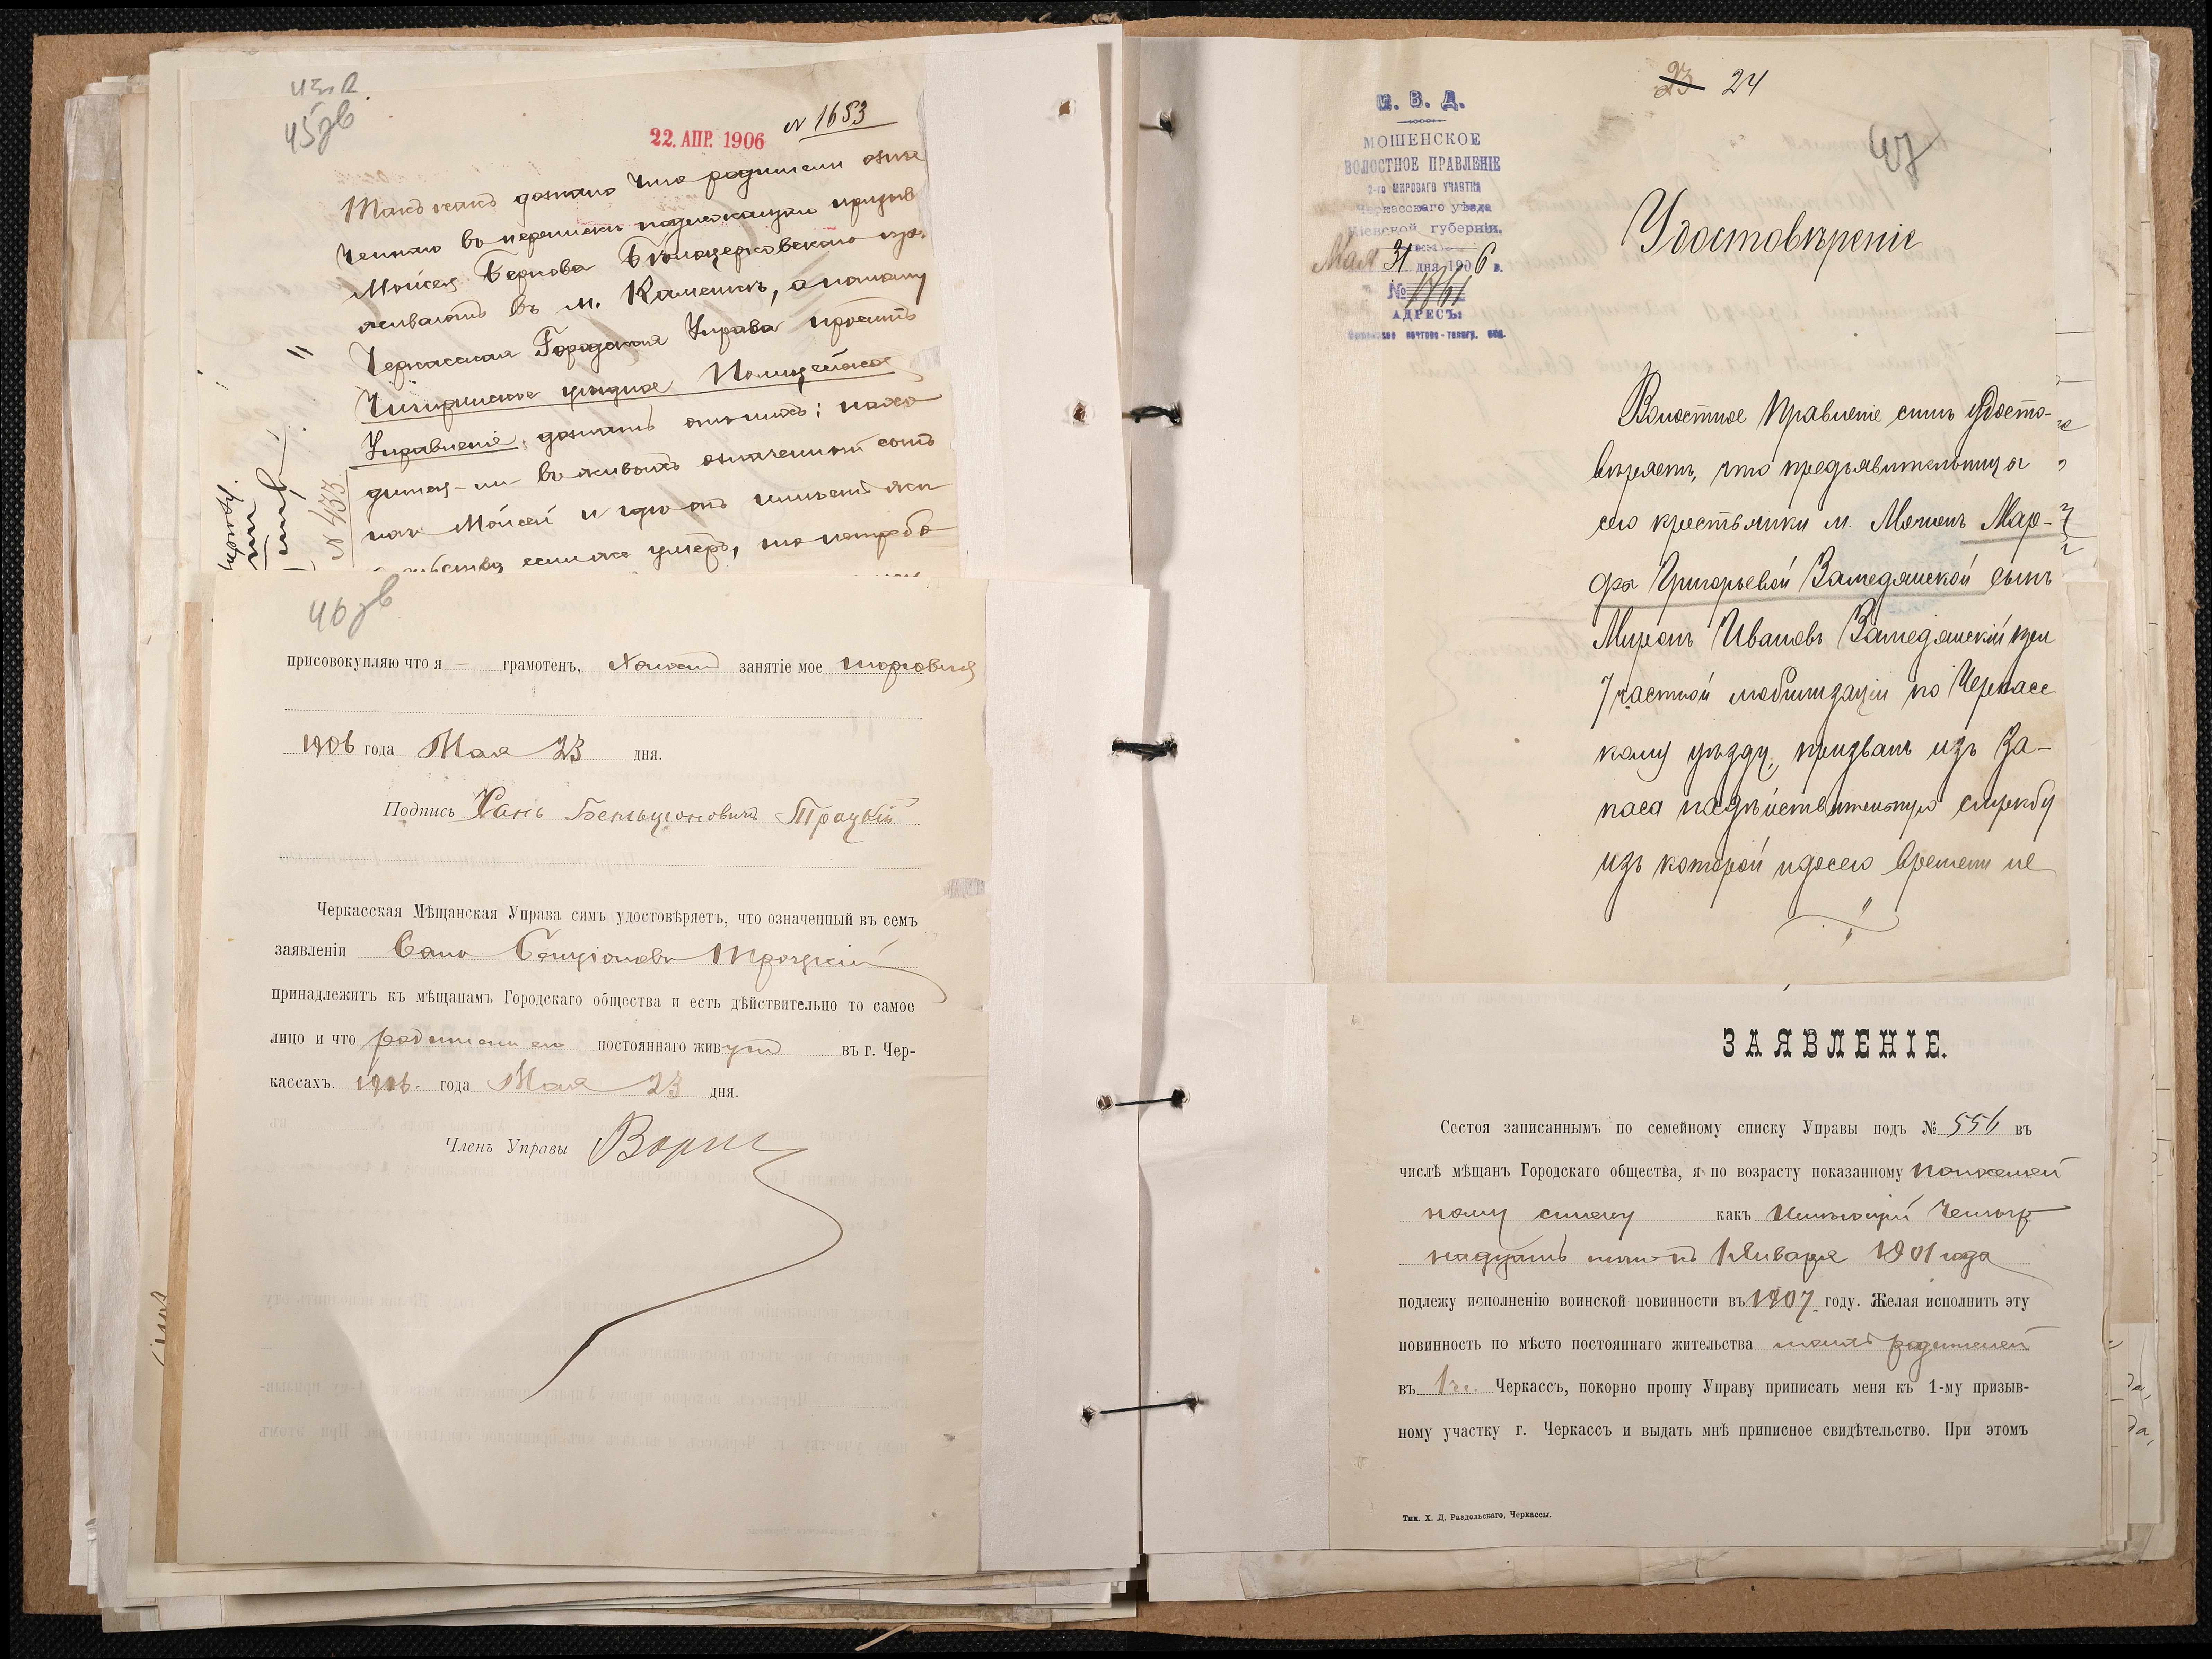 45зв
22. АПР. 1906 № 1653
Такъ какъ дознано что родители озна
ченнаго въ переписки подлежащаго призыв
Мойсея Беркова Бѣлоцерковскаго про
живаютъ въ м. Каменкѣ, а потому
Черкасская Городская Управа проситъ
Чигиринское уѣздное Полицейское
Управленіе дознать; нахо
дится-ли въ живыхъ означенный
Мойсей и гдѣ онъ имѣетъ жи
если же умеръ, то
№ 433
46зв
присовокупляю что я — грамотенъ, холостъ занятіе мое торговля
1906 года Мая 23 дня.
Подпись Хань Беньціоновичъ Троцкій
Черкасская Мѣщанская Управа симъ удостовѣряетъ, что означенный въ семъ
заявленіи Бенціоновъ Троцкій
принадлежитъ къ мѣщанамъ Городскаго общества и есть дѣйствительно то самое
лицо и что родители его постояннаго живутъ въ г. Чер-
кассахъ. 1906. года Мая 23 дня.
Членъ Управы
23 24
47
М. В. Д.
МОШЕНСКОЕ
ВОЛОСТНОЕ ПРАВЛЕНІЕ
2-го МИРОВАГО УЧАСТКА
Черкасскаго уѣзда
Кіевской губерніи.
Мая 31 дня 1906 г.
№ 1761
АДРЕСЪ:
Мошенское почтово-телегр. отд.
Удостовѣреніе
Волостное Правленіе симъ удосто-
вѣряетъ, что предъявительницы
сего крестьянки м. Мошенъ Мар-
фы Григорьевой Замедянской сынъ
Миронъ Ивановъ Замедянскій при
7 частной мобилизаціи по Черкасс
кому уѣзду, призванъ изъ За-
паса на дѣйствительную службу
изъ которой и до сего времени не
ЗАЯВЛЕНІЕ.
Состоя записаннымъ по семейному списку Управы подъ № 556 въ
числѣ мѣщанъ Городскаго общества, я по возрасту показанному по семей
ному списку какъ имѣющій четыр
надцать лѣтъ къ 1 Января 1901 года
подлежу исполненію воинской повинности въ 1907 году. Желая исполнить эту
повинность по мѣсто постояннаго жительства моихъ родителей
въ г. Черкассъ, покорно прошу Управу приписать меня къ 1-му призыв-
ному участку г. Черкассъ и выдать мнѣ приписное свидѣтельство. При этомъ
Тип. Х. Д. Раздольскаго, Черкассы.